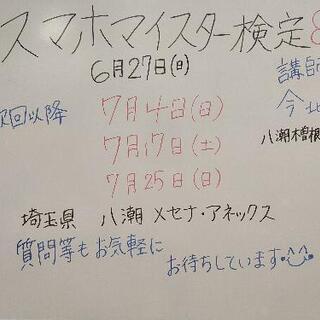 スマホマイスター検定
6月27日(日)
講師
次回以降
7月4日(日)
今北
八潮 木曽根
7月17日(土)
7月25日(日)
埼玉県 八潮メセナ・アネックス
質問等もお気軽に
お待ちしています